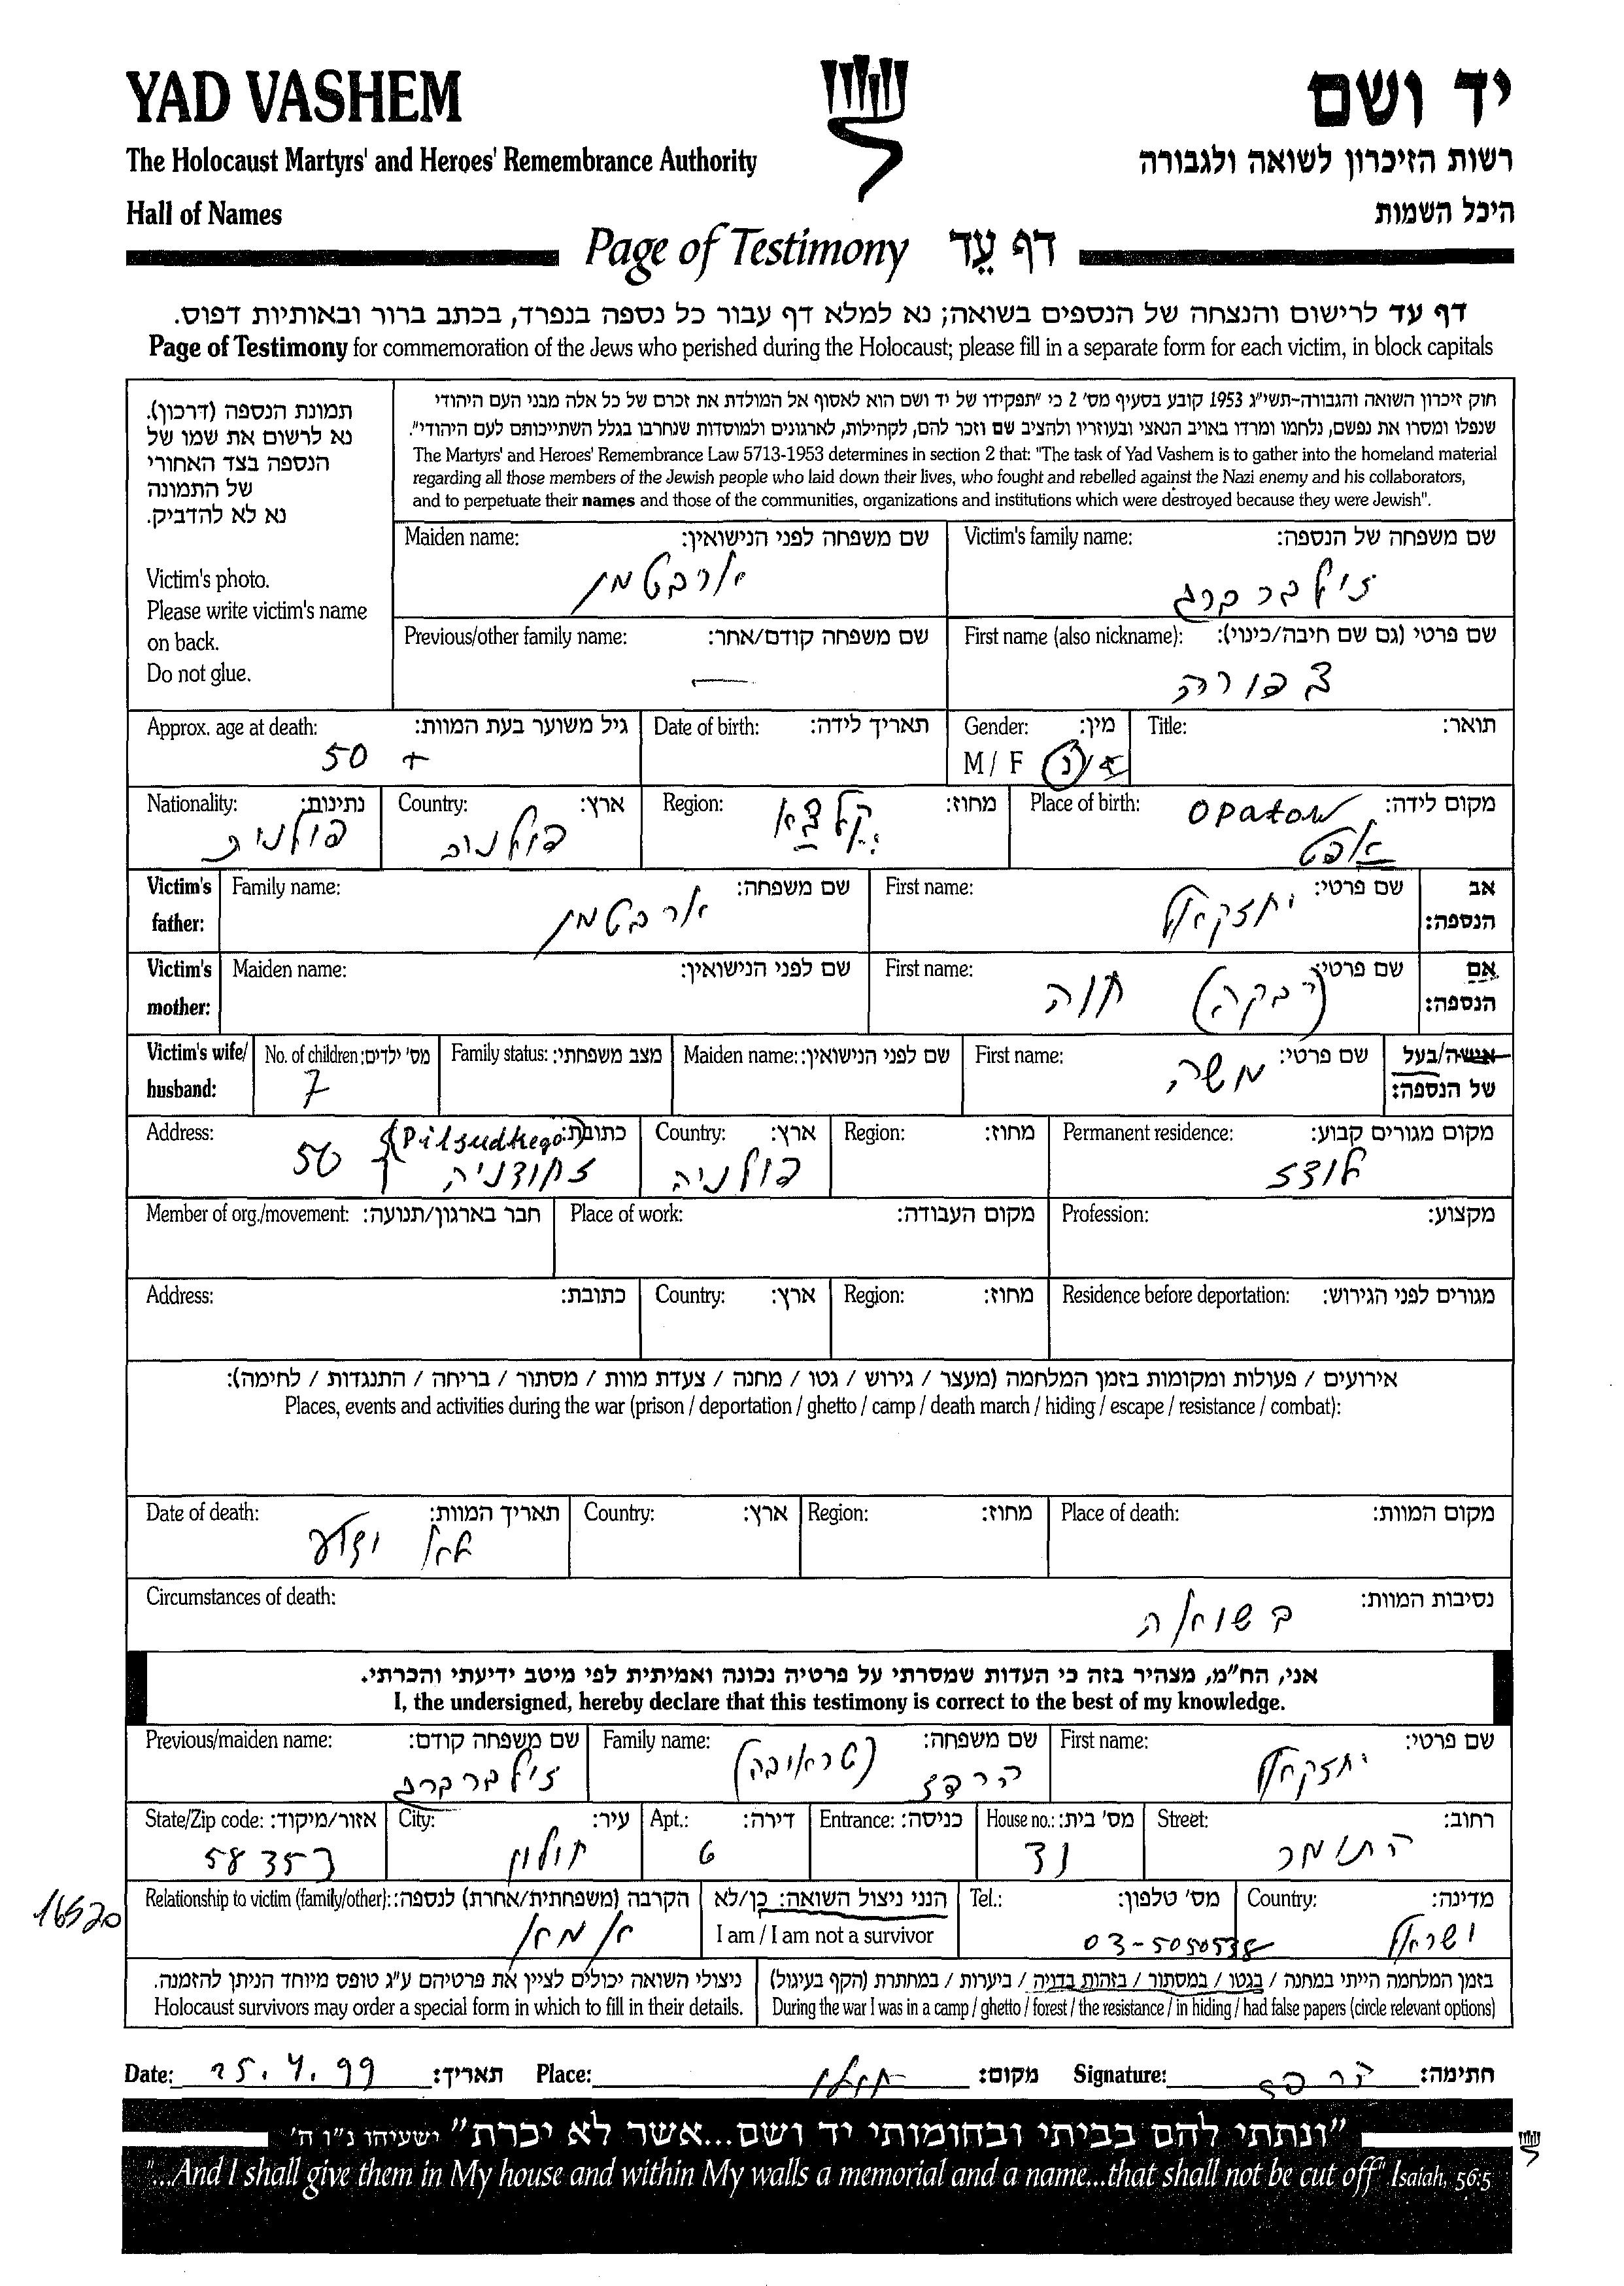 YAD VASHEM
יד ושם
The Holocaust Martyrs' and Heroes' Remembrance Authority
רשות הזיכרון לשואה ולגבורה
Hall of Names
היכל השמות
Page of Testimony דף עֵד
דף עד לרישום והנצחה של הנספים בשואה; נא למלא דף עבור כל נספה בנפרד, בכתב ברור ובאותיות דפוס.
Page of Testimony for commemoration of the Jews who perished during the Holocaust; please fill in a separate form for each victim, in block capitals
תמונת הנספה (דרכון).
נא לרשום את שמו של
הנספה בצד האחורי
של התמונה
נא לא להדביק.
Victim's photo.
Please write victim's name
on back.
Do not glue.
חוק זיכרון השואה והגבורה-תשי"ג 1953 קובע בסעיף מס' 2 כי "תפקידו של יד ושם הוא לאסוף אל המולדת את זכרם של כל אלה מבני העם היהודי
שנפלו ומסרו את נפשם, נלחמו ומרדו באויב הנאצי ובעוזריו ולהציב שם וזכר להם, לקהילות, לארגונים ולמוסדות שנחרבו בגלל השתייכותם לעם היהודי".
The Martyrs' and Heroes' Remembrance Law 5713-1953 determines in section 2 that: "The task of Yad Vashem is to gather into the homeland material
regarding all those members of the Jewish people who laid down their lives, who fought and rebelled against the Nazi enemy and his collaborators,
and to perpetuate their names and those of the communities, organizations and institutions which were destroyed because they were Jewish".
Victim's family name: שם משפחה של הנספה:
זילברברג
Maiden name: שם משפחה לפני הנישואין:
ארבטמן
First name (also nickname): שם פרטי (גם שם חיבה/כינוי):
צפורה
Previous/other family name: שם משפחה קודם/אחר:
—
Title: תואר:
Gender: מין:
M / F ז/נ
Date of birth: תאריך לידה:
Approx. age at death: גיל משוער בעת המוות:
50 +
Place of birth: מקום לידה:
OPATOW
אפט
Region: מחוז:
קלצא
Country: ארץ:
פולניה
Nationality: נתינות:
פולנית
Victim's father: אב הנספה:
First name: שם פרטי:
יחזקאל
Family name: שם משפחה:
ארבטמן
Victim's mother: אם הנספה:
First name: שם פרטי:
(רבקה) חוה
Maiden name: שם לפני הנישואין:
Victim's wife/ husband: אישה/בעל של הנספה:
First name: שם פרטי:
משה
Maiden name: שם לפני הנישואין:
Family status: מצב משפחתי:
No. of children: מס' ילדים:
7
Permanent residence: מקום מגורים קבוע:
לודז
Region: מחוז:
Country: ארץ:
פולניה
Address: כתובת:
(Pilsudkego)
זחודניה 56
Profession: מקצוע:
Place of work: מקום העבודה:
Member of org./movement: חבר בארגון/תנועה:
Residence before deportation: מגורים לפני הגירוש:
Region: מחוז:
Country: ארץ:
Address: כתובת:
אירועים / פעולות ומקומות בזמן המלחמה (מעצר / גירוש / גטו / מחנה / צעדת מוות / מסתור / בריחה / התנגדות / לחימה):
Places, events and activities during the war (prison / deportation / ghetto / camp / death march / hiding / escape / resistance / combat):
Place of death: מקום המוות:
Region: מחוז:
Country: ארץ:
Date of death: תאריך המוות:
לא ידוע
Circumstances of death: נסיבות המוות:
בשואה
אני, הח"מ, מצהיר בזה כי העדות שמסרתי על פרטיה נכונה ואמיתית לפי מיטב ידיעתי והכרתי.
I, the undersigned, hereby declare that this testimony is correct to the best of my knowledge.
First name: שם פרטי:
יחזקאל
Family name: שם משפחה:
הרפז
Previous/maiden name: שם משפחה קודם:
זילברברג
Street: רחוב:
התומר
House no.: מס' בית:
Entrance: כניסה:
Apt.: דירה:
6
City: עיר:
חולון
State/Zip code: אזור/מיקוד:
58353
Country: מדינה:
ישראל
Tel.: מס' טלפון:
03-5050538
הנני ניצול השואה: כן/לא
I am / I am not a survivor
Relationship to victim (family/other): הקרבה (משפחתית/אחרת) לנספה:
אמא
16520
בזמן המלחמה הייתי במחנה / בגטו / במסתור / בזהות בדויה / ביערות / במחתרת (הקף בעיגול)
During the war I was in a camp / ghetto / forest / the resistance / in hiding / had false papers (circle relevant options)
ניצולי השואה יכולים לציין את פרטיהם ע"ג טופס מיוחד הניתן להזמנה.
Holocaust survivors may order a special form in which to fill in their details.
Date: 25.4.99 תאריך: Place: חולון מקום: Signature: הרפז חתימה:
"ונתתי להם בביתי ובחומותי יד ושם...אשר לא יכרת" ישעיהו נ"ו ה'
"...And I shall give them in My house and within My walls a memorial and a name...that shall not be cut off" Isaiah, 56:5